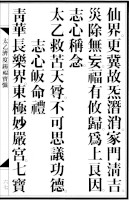 仙界更冀故炁潛消家門清吉
災除無妄福有攸歸為上良因
志心稱念
太乙救苦天尊不可思議功德
志心皈命禮
青華長樂界東極妙嚴宮七寶